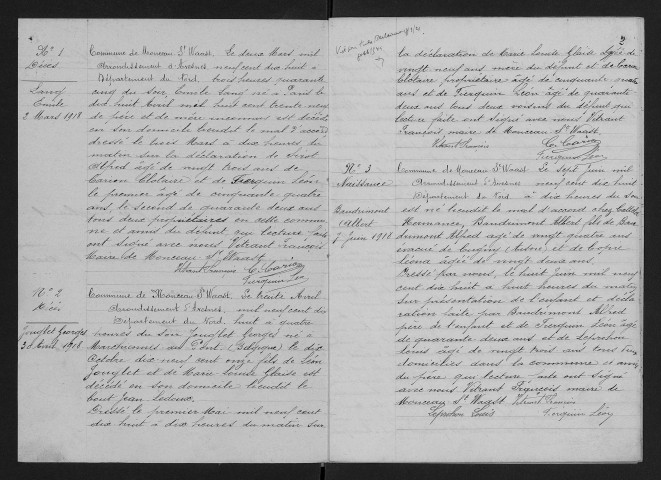 N° 1
Décès
Lang
Emile
2 Mars 1918
Commune de Monceau St Waast. Le deux Mars mil
Arrondissement d'Avesnes neuf cent dix huit à
Département du Nord. trois heures quarante
cinq du soir Emile Lang né à Paris le
dix huit Avril mil huit cent trente neuf
de père et de mère inconnus est décédé
en son domicile lieudit le mat d'accord
dressé le trois Mars à dix heures du
matin sur la déclaration de
Alfred âgé de vingt trois ans de
Carion Clotaire et de Fierquin Léon
le premier âgé de cinquante quatre
ans, le second de quarante deux ans
tous deux propriétaires en cette commu
ne et amis du défunt qui lecture faite
ont signé avec nous Vitrant François
Maire de Monceau St Waast
Vitrant François C. Carion
Fierquin Léon
N° 2
Décès
Jouglet Georges
30 Avril 1918
Commune de Monceau St Waast. Le trente Avril
Arrondissement d'Avesnes mil neuf cent dix
Département du Nord. huit à quatre
heures du soir Jouglet Georges né à
Marchiennes au Pont (Belgique) le dix
Octobre dix neuf cent onze fils de Léon
Jouglet et de Marie Louise Glaise est
décédé en son domicile lieudit le
bout Jean Ledoux.
Dressé le premier Mai mil neuf cent
dix huit à dix heures du matin sur
2
la déclaration de Marie Louise Glaise âgée de
vingt neuf ans mère du défunt et de Carion
Clotaire propriétaire âgé de cinquante quatre
ans et de Fierquin Léon âgé de quarante
deux ans tous deux voisins du défunt qui
lecture faite ont signé avec nous Vitrant
François maire de Monceau St Waast
Vitrant François C. Carion
Fierquin Léon
N° 3
Naissance
Baudrumont
Albert
7 Juin 1918
Commune de Monceau St Waast. Le sept juin mil
Arrondissement d'Avesnes neuf cent dix huit
Département du Nord à dix heures du soir
est né lieudit le mat d'accord chez
Baudrumont Albert fils de Bau
drumont Alfred âgé de vingt quatre ans
(Aisne) et de
Léona âgée de vingt deux ans.
Dressé par nous, le huit Juin mil neuf
cent dix huit à huit heures du matin
sur présentation de l'enfant et décla
ration faite par Baudrumont Alfred
père de l'enfant et de Fierquin Léon âgé
de quarante deux ans et de Lepretion
Louis âgé de vingt trois ans tous
domiciliés dans la commune et amis
du père qui lecture faite ont signé
avec nous Vitrant François maire de
Monceau St Waast Vitrant François
Louis Fierquin Léon